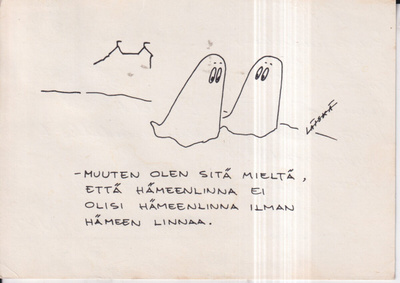 -MUUTEN OLEN SITÄ MIELTÄ,
ETTÄ HÄMEENLINNA EI
OLISI HÄMEENLINNA ILMAN
HÄMEEN LINNAA.